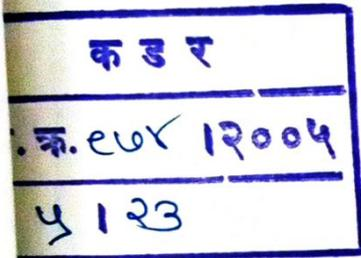 क ड र
क्र. ९७४ । २००५
५ । २३